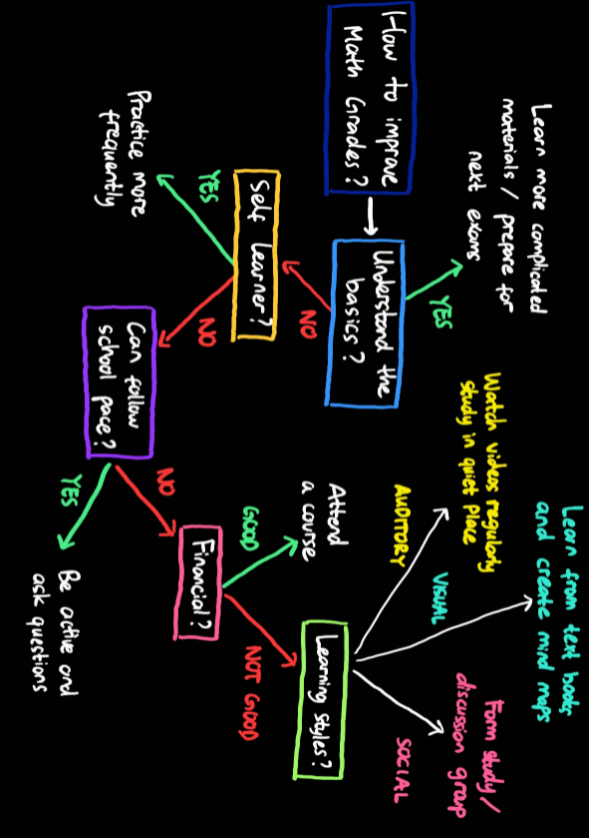 How to improve
Math Grades?
Understand the
basics?
YES
Learn more complicated
materials / prepare for
next exams
NO
Self Learner?
YES
Practice more
frequently
NO
Can follow
school pace?
YES
Be active and
ask questions
NO
Financial?
GOOD
Attend
a course
NOT GOOD
Learning styles?
AUDITORY
Watch videos regularly
study in quiet place
VISUAL
Learn from text books
and create mind maps
SOCIAL
Form study/
discussion group